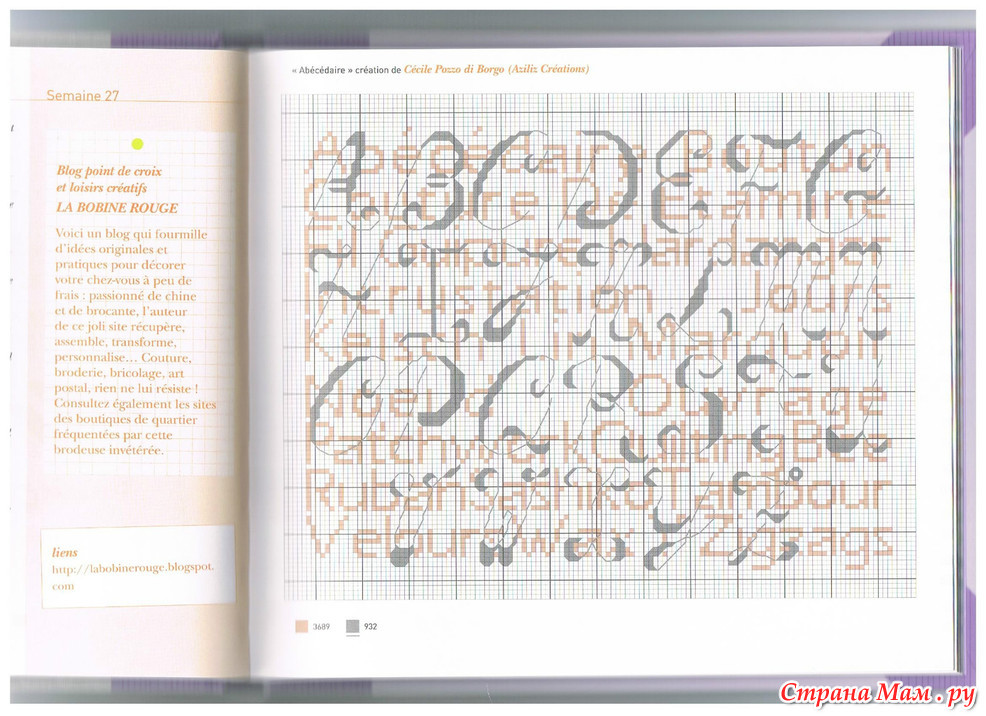 Semaine 27
Blog point de croix
et loisirs créatifs
LA BOBINE ROUGE
Voici un blog qui fourmille
d'idées originales et
pratiques pour décorer
votre chez-vous à peu de
frais : passionné de chine
et de brocante, l'auteur
de ce joli site récupère,
assemble, transforme,
personnalise… Couture,
broderie, bricolage, art
postal, rien ne lui résiste !
Consultez également les sites
des boutiques de quartier
fréquentées par cette
brodeuse invétérée.
liens
http://labobinerouge.blogspot.
com
« Abécédaire » création de Cécile Pozzo di Borgo (Aziliz Créations)
Abécédaire Bouton
Dé Etamine
Hardanger
Incrustation Jours
Kelsch Lin Marquoir
Noeud Ouvrage
Patchwork Quilting Bee
Ruban Sashiko Tambour
Velours Zigzags
3689 932
Страна Мам.ру